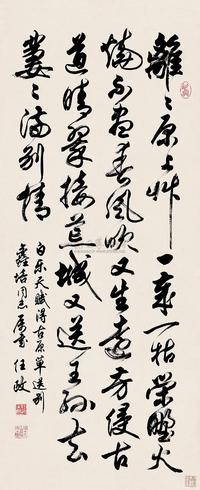 離々原上艸一歲一枯榮野火
燒不盡春風吹又生遠芳侵古
道晴翠接荒城又送王孫去
萋々滿別情
白乐天賦得古原草送別
鑫培同志属書 任政